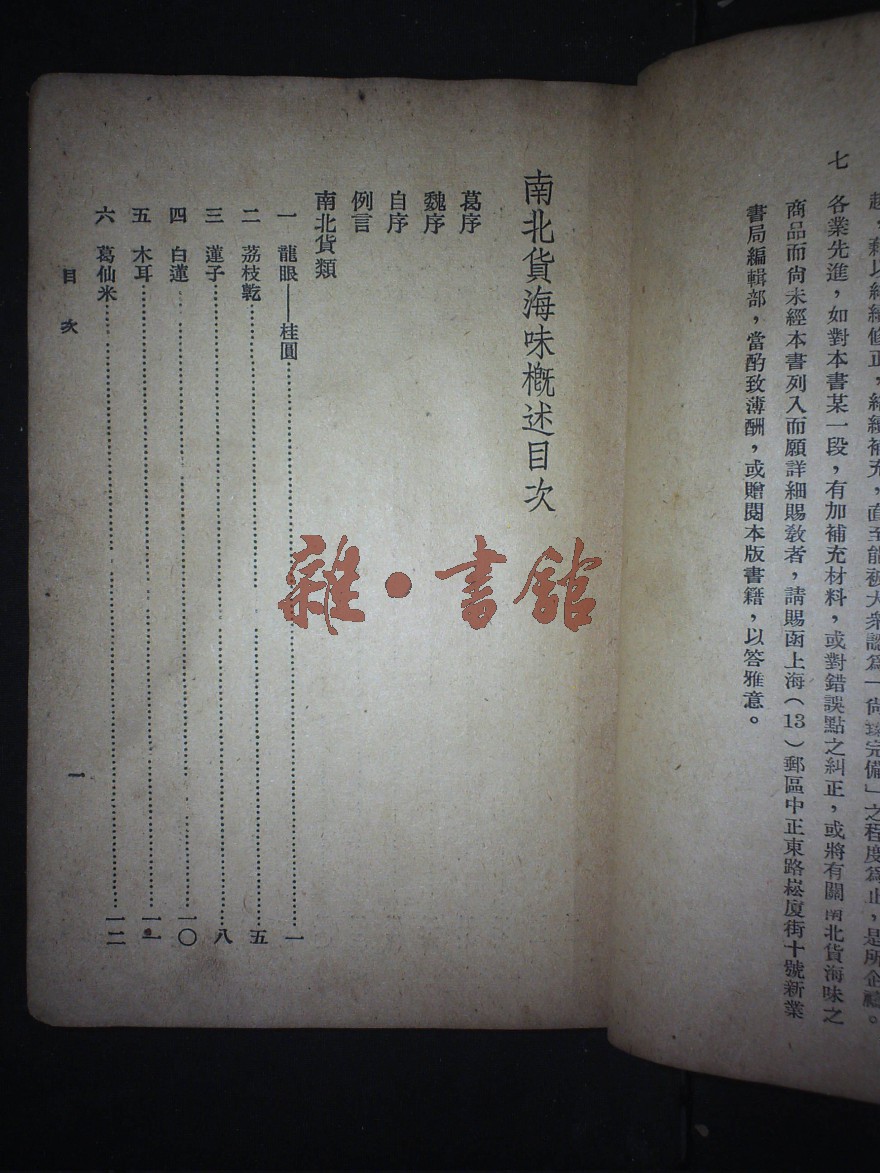 以繼續修正，繼續補充，直至能被大衆認爲「尙 完備」之程度爲止，是所企禱。
七　各業先進，如對本書某一段，有加補充材料，或對錯誤點之糾正，或將有關南北貨海味之
商品而尙未經本書列入而願詳細賜敎者，請賜函上海（13）郵區中正東路崧厦街十號新業
書局編輯部，當酌致薄酬，或贈閱本版書籍，以答雅意。
南北貨海味槪述目次
葛序
魏序
自序
例言
南北貨類
一　龍眼——桂圓……一
二　荔枝乾……五
三　蓮子……八
四　白蓮……一〇
五　木耳……一一
六　葛仙米……一二
目次
一
雜・書館